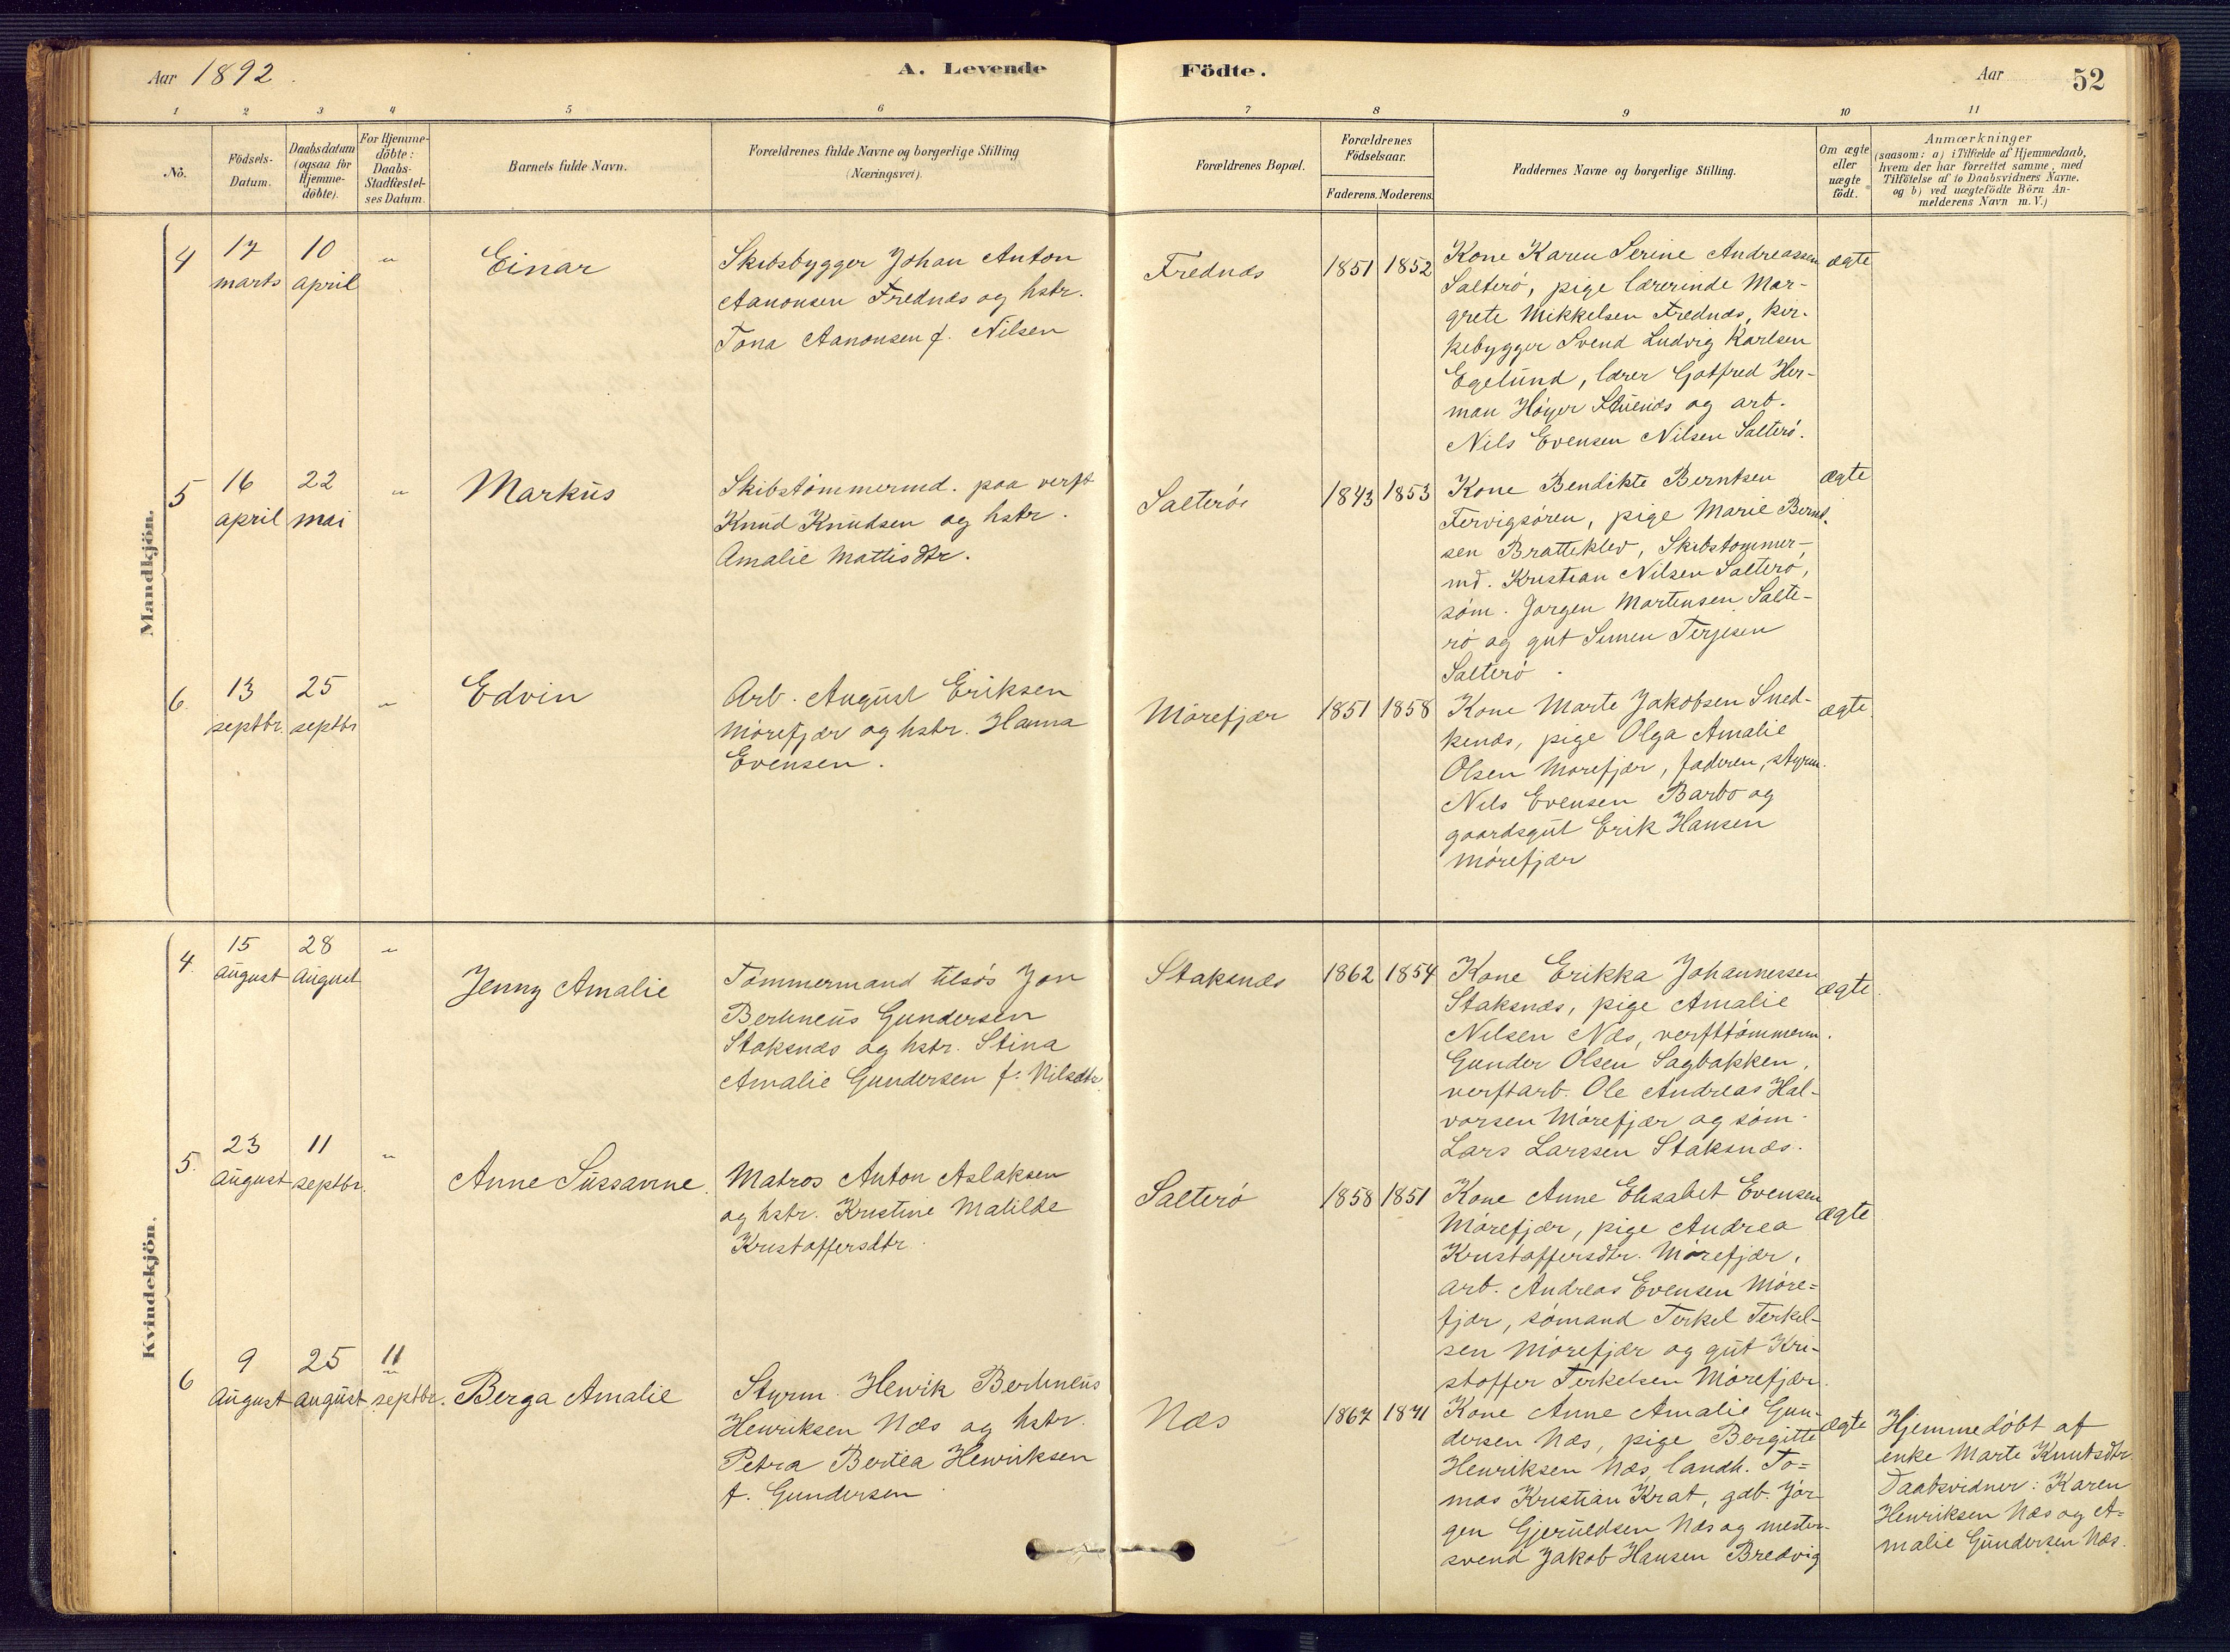 Aar 1892.
A. Levende Födte.
Aar
52
1 2 3 4 5 6 7 8 9 10 11
No.
Födsels-
Datum.
Daabsdatum
(ogsaa for
Hjemme-
döbte).
For Hjemme-
döbte:
Daabs-
Stadfæstel-
ses Datum.
Barnets fulde Navn.
Forældrenes fulde Navne og borgerlige Stilling
(Næringsvei).
Forældrenes Bopæl.
Forældrenes
Födselsaar.
Faderens. Moderens.
Faddernes Navne og borgerlige Stilling.
Om ægte
eller
uægte
födt.
Anmærkninger
(saasom: a) i Tilfælde af Hjemmedaab,
hvem der har forrettet samme, med
Tilföielse af to Daabsvidners Navne,
og b) ved uægtefödte Börn An-
melderens Navn m. V.)
Mandkjön.
4
17
marts
10
april
"
Einar
Skibsbygger Johan Anton
Aanonsen Frednæs og hstr.
Tona Aanonsen f. Nilsen
Frednæs
1851
1852
Kone Karen Serine Andreassen
Salterö, pige lærerinde Mar-
grete Mikkelsen Frednæs, kir-
kebygger Svend Ludvig Karlsen
Egelund, lærer Gotfred Her-
man Höyer Stuenæs og arb.
Nils Evensen Nilsen Salterö.
ægte
5
16
april
22
mai
"
Markus
Skibstömmermd. paa verft
Knud Knudsen og hstr.
Amalie Mattisdtr.
Salterö
1843
1853
Kone Bendikte Berntsen
Tervigsören, pige Marie Bernt-
sen Bratteklev, Skibstömmer-
md. Kristian Nilsen Salterö,
söm. Jörgen Mortensen Salte-
rö og gut Simen Terjesen
Salterö.
ægte
6.
13
septbr.
25
septbr
"
Edvin
Arb. August Eriksen
Mörefjær og hstr. Hanna
Evensen.
Mörefjær
1851
1858
Kone Marte Jakobsen Sned-
kenæs, pige Olga Amalie
Olsen Mörefjær, faderen, styrm.
Nils Evensen Barbo og
gaardsgut Erik Hansen
Mörefjær
ægte
Kvindekjön.
4.
15
August
28
August
"
Jenny Amalie
Tömmermand tilsös Jon
Bertineus Gundersen
Staksnæs og hstr. Stina
Amalie Gundersen f. Nilsdtr.
Staksnæs
1862
1854
Kone Erikka Johannessen
Staksnæs, pige Amalie
Nilsen Næs, verfttömmerm.
Gunder Olsen Sagbakken,
verftarb. Ole Andreas Hal-
vorsen Mörefjær og söm.
Lars Larssen Staksnæs.
ægte.
5.
23
August
11
septbr.
"
Anne Sussanne.
Matros Anton Aslaksen
og hstr. Kristine Matilde
Kristoffersdtr.
Salterö
1858
1851
Kone Anne Elisabet Evensen
Mörefjær, pige Andrea
Kristoffersdtr. Mörefjær,
arb. Andreas Evensen Möre=
fjær, sömand Terkel Terkel-
sen Mörefjær og gut Kri-
stoffer Terkelsen Mörefjær.
ægte
6
9
August
25
August
11
septbr.
Berga Amalie
Styrm. Henrik Bertineus
Henriksen Næs og hstr.
Petra Bertea Henriksen
f. Gundersen
Næs
1867
1871
Kone Anne Amalie Gun-
dersen Næs, pige Bergitte
Henriksen Næs, landh. To=
mas Kristian Krat, gdb. Jör-
gen Gjeruldsen Næs og mester-
svend Jakob Hansen Bredvig
ægte
Hjemmedöbt af
enke Marte Knutsdtr.
Daabsvidner: Karen
Henriksen Næs og A=
malie Gundersen Næs.